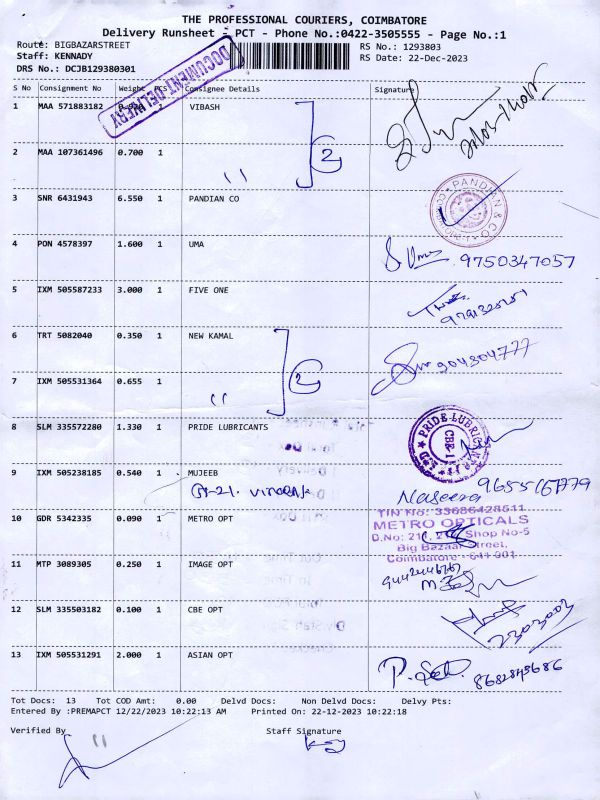 THE PROFESSIONAL COURIERS, COIMBATORE
Delivery Runsheet - PCT - Phone No.:0422-3505555 - Page No.:1
Route: BIGBAZARSTREET
RS No.: 1293803
Staff: KENNADY
RS Date: 22-Dec-2023
DRS No.: DCJB129380301
DOCUMENT DELIVERY
S No Consignment No Weight PCS Consignee Details Signature
1 MAA 571883182 VIBASH
2
2 MAA 107361496 0.700 1 ''
3 SNR 6431943 6.550 1 PANDIAN CO
PANDIAN & CO
4 PON 4578397 1.600 1 UMA
Uma 9750347057
5 IXM 505587233 3.000 1 FIVE ONE
6 TRT 5082040 0.350 1 NEW KAMAL
904304777
2
7 IXM 505531364 0.655 1 ''
8 SLM 335572280 1.330 1 PRIDE LUBRICANTS
PRIDE LUBRICANTS
9 IXM 505238185 0.540 1 MUJEEB
Naseera 9655167779
TIN No: 33686428511
10 GDR 5342335 0.090 1 METRO OPT
METRO OPTICALS
Shop No-5
Big Bazaar Street,
Coimbatore - 641 001
11 MTP 3089305 0.250 1 IMAGE OPT
12 SLM 335503182 0.100 1 CBE OPT
13 IXM 505531291 2.000 1 ASIAN OPT
8682845686
Tot Docs: 13 Tot COD Amt: 0.00 Delvd Docs: Non Delvd Docs: Delvy Pts:
Entered By :PREMAPCT 12/22/2023 10:22:13 AM Printed On: 22-12-2023 10:22:18
Verified By
Staff Signature